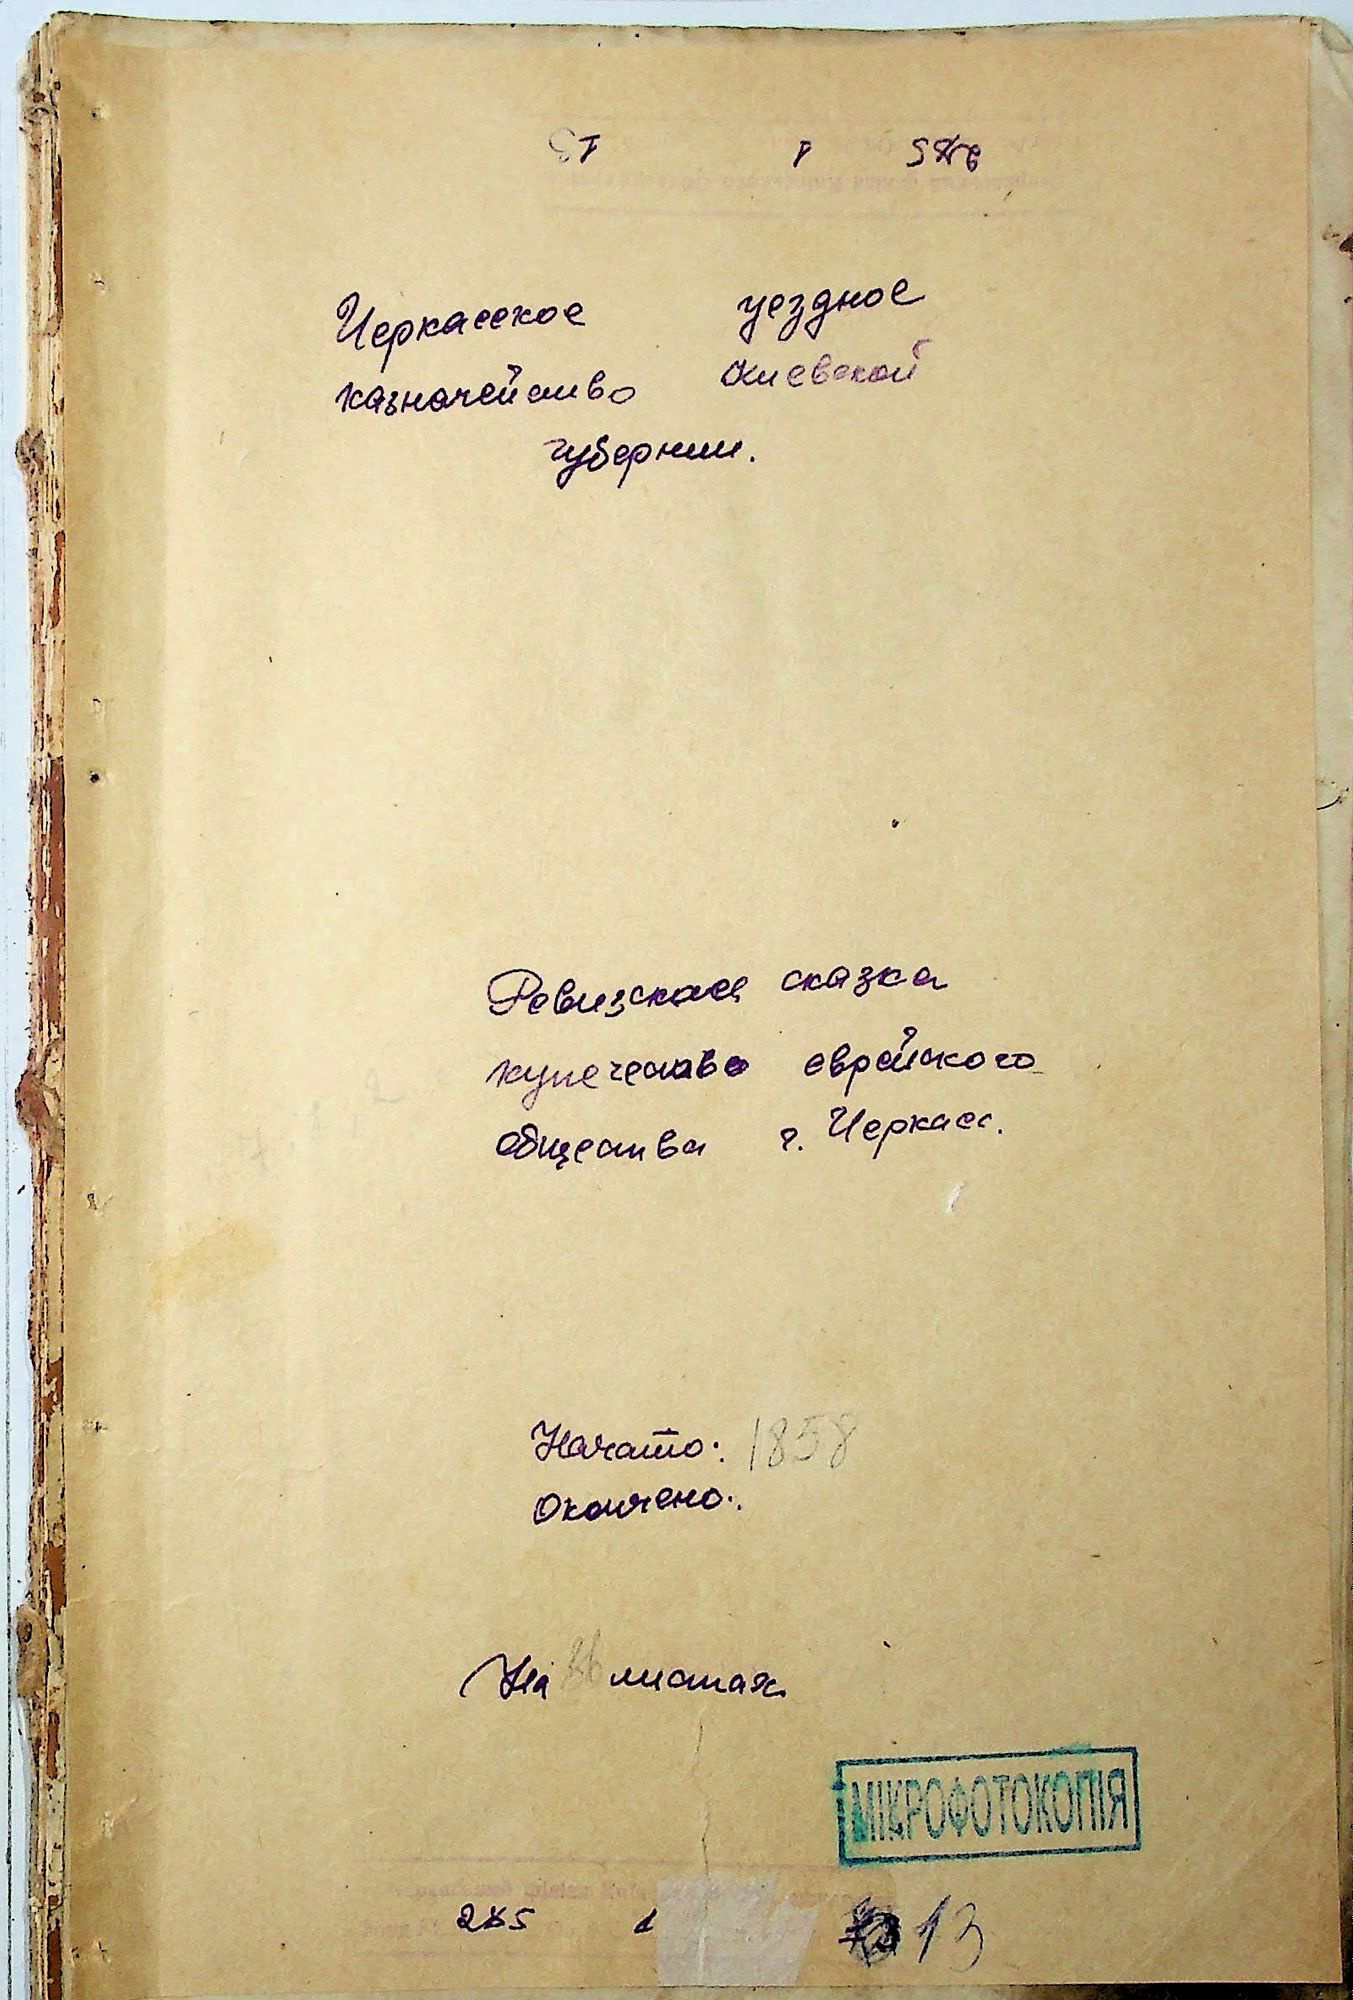 Черкасское уездное
казначейство Киевской
губернии.
Ревизская сказка
купечества еврейского
общества г. Черкасс.
Начато: 1858
Окончено:
На листах
МІКРОФОТОКОПІЯ
1 13